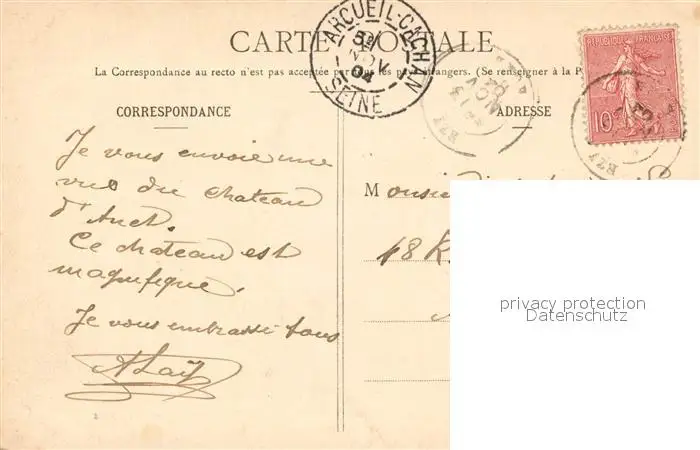 CARTE POSTALE
La Correspondance au recto n'est pas acceptée par tous les pays étrangers. (Se renseigner à la P
CORRESPONDANCE
ADRESSE
ARCUEIL-CACHAN
NOV
04
SEINE
REPUBLIQUE FRANÇAISE
10
NOV
Je vous envoie une
vue du chateau
d'Anet.
Ce chateau est
magnifique.
Je vous embrasse tous
Monsieu
48 R.
privacy protection
Datenschutz